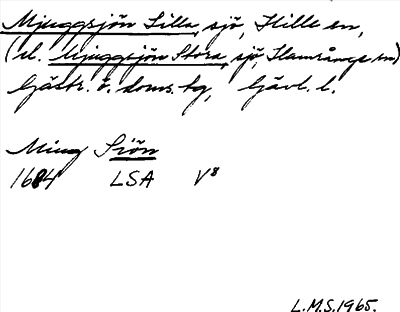 Mjuggsjön Lilla, sjö, Hille sn,
(el. Mjuggsjön Stora, sjö, Hamrånge sn)
Gästr. ö. doms. tg, Gävl. l.
Miug Siön
1684 LSA V⁸
L.M.S. 1965.